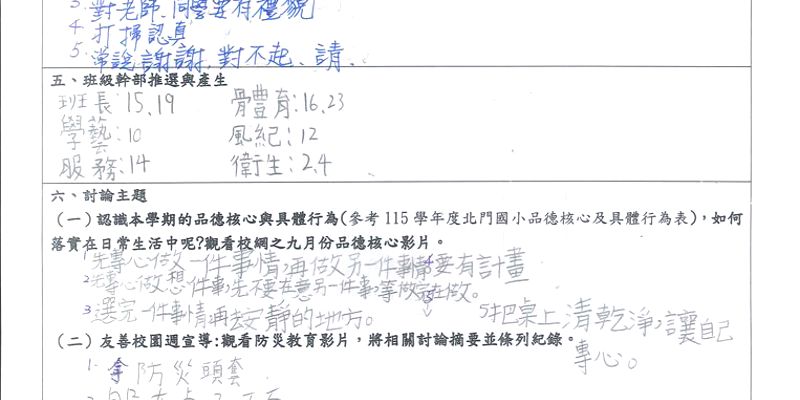 3. 對老師、同學要有禮貌
4. 打掃認真
5. 常說謝謝、對不起、請、
五、班級幹部推選與產生
班長:15、19 體育:16、23
學藝:10 風紀:12
服務:14 衛生:2、4
六、討論主題
(一)認識本學期的品德核心與具體行為(參考 115 學年度北門國小品德核心及具體行為表),如何
落實在日常生活中呢?觀看校網之九月份品德核心影片。
1 先專心做一件事情,再做另一件事情 4 要有計畫
2 先專心做想一件事,先不要在意另一件事,等做完在做。
3 選完一件事情再去安靜的地方。
5 把桌上清乾淨,讓自己
專心。
(二)友善校園週宣導:觀看防災教育影片,將相關討論摘要並條列紀錄。
1. 拿防災頭套